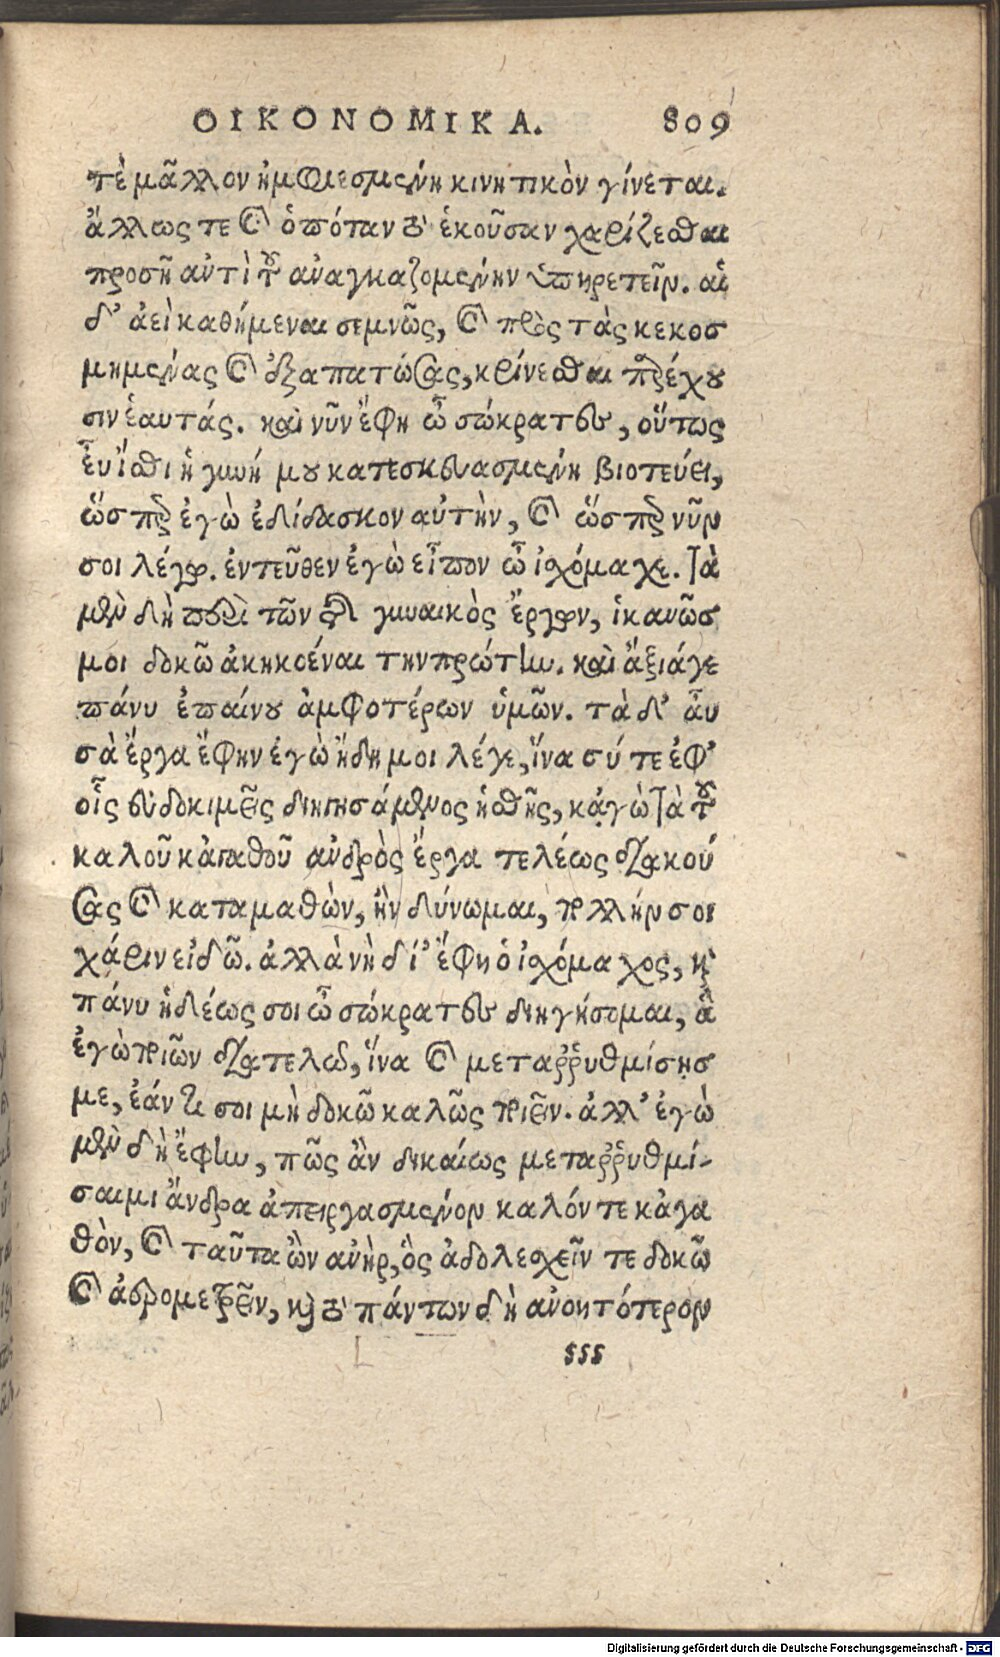 ΟΙΚΟΝΟΜΙΚΑ. 809
τὲ μᾶλλον ἠμφιεσμένη κινητικὸν γίνεται.
ἄλλως τε καὶ ὁπόταν τὸ ἑκοῦσαν χαρίζεσθαι
προσῇ αὐτὶ τοῦ ἀναγκαζομένην ὑπηρετεῖν. αἱ
δ’ ἀεὶ καθήμεναι σεμνῶς, καὶ πρὸς τὰς κεκοσ
μημένας καὶ ἐξαπατώσας, κρίνεσθαι παρέχου
σιν ἑαυτάς. καὶ νῦν ἔφη ὦ σώκρατες, οὕτως
εὖ ἴσθι ἡ γυνή μου κατεσκευασμένη βιοτεύει,
ὥσπερ ἐγὼ ἐδίδασκον αὐτὴν, καὶ ὥσπερ νῦν
σοι λέγω. ἐντεῦθεν ἐγὼ εἶπον ὦ ἰσχόμαχε. τὰ
μὲν δὴ περὶ τῶν τῆς γυναικὸς ἔργων, ἱκανῶσ
μοι δοκῶ ἀκηκοέναι την πρώτην. καὶ ἄξιάγε
πάνυ ἐπαίνου ἀμφοτέρων ὑμῶν. τὰ δ’ αὖ
σὰ ἔργα ἔφην ἐγὼ ἤδη μοι λέγε, ἵνα σύ τε ἐφ’
οἷς εὐδοκιμεῖς διηγησάμενος ἡσθῇς, κἀγὼ τὰ τοῦ
καλοῦ κἀγαθοῦ ἀνδρὸς ἔργα τελέως διακού
σας καὶ καταμαθὼν, ἢν δύνωμαι, πολλήν σοι
χάριν εἰδῶ. ἀλλὰ νὴ δί’ ἔφη ὁ ἰσχόμαχος, καὶ
πάνυ ἡδέως σοι ὦ σώκρατες διηγήσομαι, ἃ
ἐγὼ ποιῶν διατελῶ, ἵνα καὶ μεταῤῥυθμίσῃσ
με, ἐάν τι σοι μὴ δοκῶ καλῶς ποιεῖν. ἀλλ’ ἐγὼ
μὲν δὴ ἔφην, πῶς ἂν δικαίως μεταῤῥυθμί-
σαιμι ἄνδρα ἀπειργασμένον καλόν τε κἀγα
θὸν, καὶ ταῦτα ὢν ἀνὴρ, ὃς ἀδολεσχεῖν τε δοκῶ
καὶ ἀερομετρεῖν, καὶ τὸ πάντων δὴ ἀνοητότερον
sss
Digitalisierung gefördert durch die Deutsche Forschungsgemeinschaft - DFG